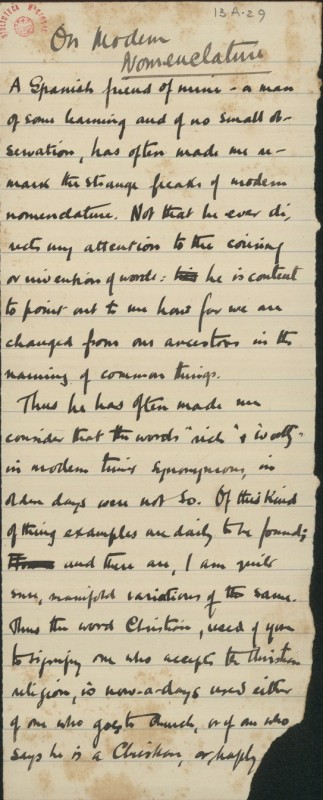 13-A-29
On Modern
Nomenclature
A Spanish friend of mine - a man
of some learning and of no small ob-
servation, has often made me re-
mark the strange freaks of modern
nomenclature. Not that he ever di,
rects my attention to the coining
or invention of words: he is content
to point out to me how far we are
changed from our ancestors in the
naming of common things.
Thus he has often made me
consider that the words "rich" & worthy -
in modern times synonymous, in
olden days were not so. Of this kind
of thing examples are daily to be found;
and there are, I am quite
sure, manifold variations of the same.
Thus the word Christian, used of yore
to signify one who accepts the Christian
religion, is now-a-days used either
of one who goes to Church, or of one who
says he is a Christian, or, haply